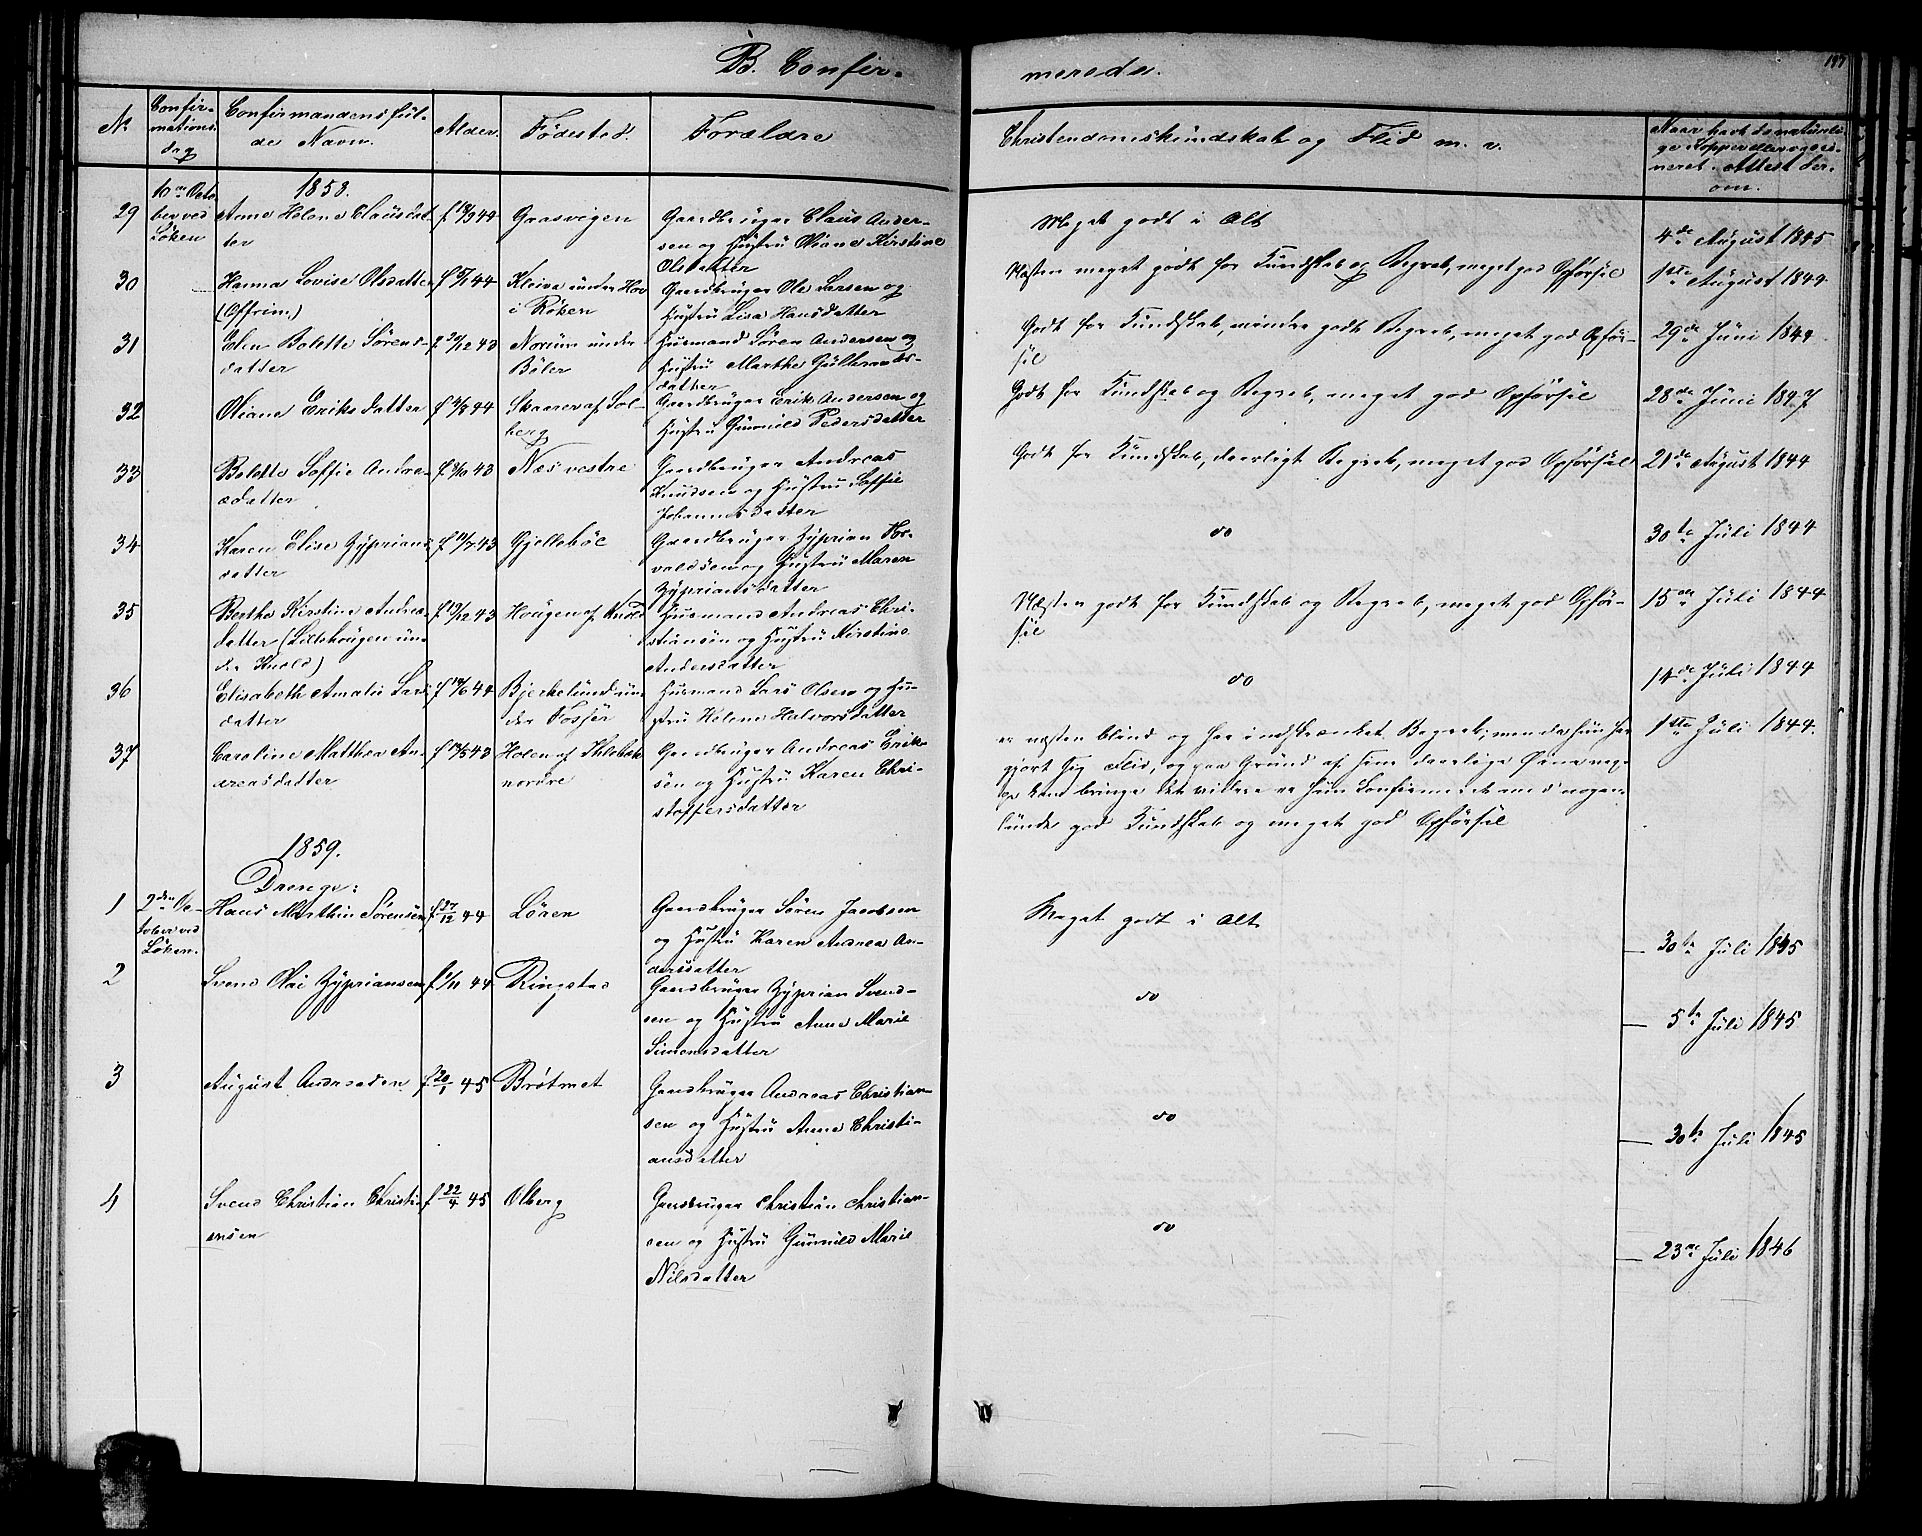 B. Confir-
merede.
No
Confir-
mations-
dag
Confirmandens ful-
de Navn.
Alder.
Fødested
Forældre
Christendomskundskab og Flid m. v.
Naar havt de naturli-
ge Kopper eller vacci-
neret. Attest der-
om.
1858.
10de Octo-
ber ved
Løken
29
Anne Helene Clausdat-
ter
Gaasvigen
Gaardbruger Claus Ander-
sen og Hustru Oliane Kirstine
Olsdatter
Meget godt i Alt
4de August 1845
30
Hanna Lovise Olsdatter
(Affrim)
Kleiva under Hov
i Røken
Gaardbruger Ole Larsen og
Hustru Lisa Hansdatter
Næsten meget godt for Kundskab og Begreb, meget god Opførsel
1ste August 1844
31
Elen Bolette Sørens-
datter
f 30/12 43
under
Bøler
Huusmand Søren Andersen og
Hustru Marthe Gulbrands-
datter
Godt for Kundskab, mindre godt Begreb, meget god Opfør-
sel
29de Juni 1844
32
Oliane Eriksdatter
Skaarer af Sol-
berg
Gaardbruger Erik Andersen og
Hustru Gunnild Pedersdatter
Godt for Kundskab og Begreb, meget god Opførsel
28de Juni 1847
33
Bolette Soffie Andrea-
sdatter
Næs vestre
Gaardbruger Andreas
Knudsen og Hustru Soffie
Johannesdatter
Godt for Kundskab, daarligt Begreb, meget god Opførsel
21de August 1844
34
Karen Elise Zyprians-
datter
Gjellebøl
Gaardbruger Zyprian Hov-
valdsen og Hustru Maren
Zypriansdatter
do
30te Juli 1844
35
Berthe Kirstine Andrea-
datter (Lillehougen un-
der Knold)
f 19/12 43
Hougen af Knold
Huusmand Andreas Chri-
stiansen og Hustru Kirstine
Andersdatter
Næsten godt for Kundskab og Begreb, meget god Opfør-
sel
15de Juli 1844
36
Elisabeth Amalie Lars-
datter
Bjerkelund un-
der Fosser
Huusmand Lars Olsen og Hu-
stru Helene Halvorsdatter
do
14de Juli 1844
37
Caroline Mathea An-
dreasdatter
Holen af
nordre
Gaardbruger Andreas Erik-
sen og Hustru Karen Chri-
stoffersdatter
er næsten blind og har indskrænket Begreb; men da hun har
gjort sig Flid, og paa Grund af sine daarlige Øine
kan bringe det videre er hun Confirmeret med nogen-
lunde god Kundskab og meget god Opførsel
1ste Juli 1844.
1859.
Drenge:
1
2den Oc-
tober ved
Løken.
Hans Marthin Sørensen
f 27/12 44
Løren
Gaardbruger Søren Jacobsen
og Hustru Karen Andrea An-
dersdatter
Meget godt i Alt
30te Juli 1845
2
Svend Olai Zypriansen
f 1/11 44
Ringstad
Gaardbruger Zyprian Svend-
sen og Hustru Anne Marie
Simensdatter
do
5te Juli 1845
3
August Andreasen
f 20/1 45
Brøtmet
Gaardbruger Andreas Christian-
sen og Hustru Anne Christi-
ansdatter
do
30te Juli 1845
4
Svend Christian Christi-
ansen
f 22/4 45
Olberg
Gaardbruger Christian Christian-
sen og Hustru Gunnild Marie
Nilsdatter
do
23de Juli 1846